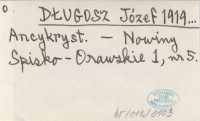 0.
DŁUGOSZ Józef 1919...
Ancykryst. – Nowiny
Spisko-Orawskie 1, nr 5.